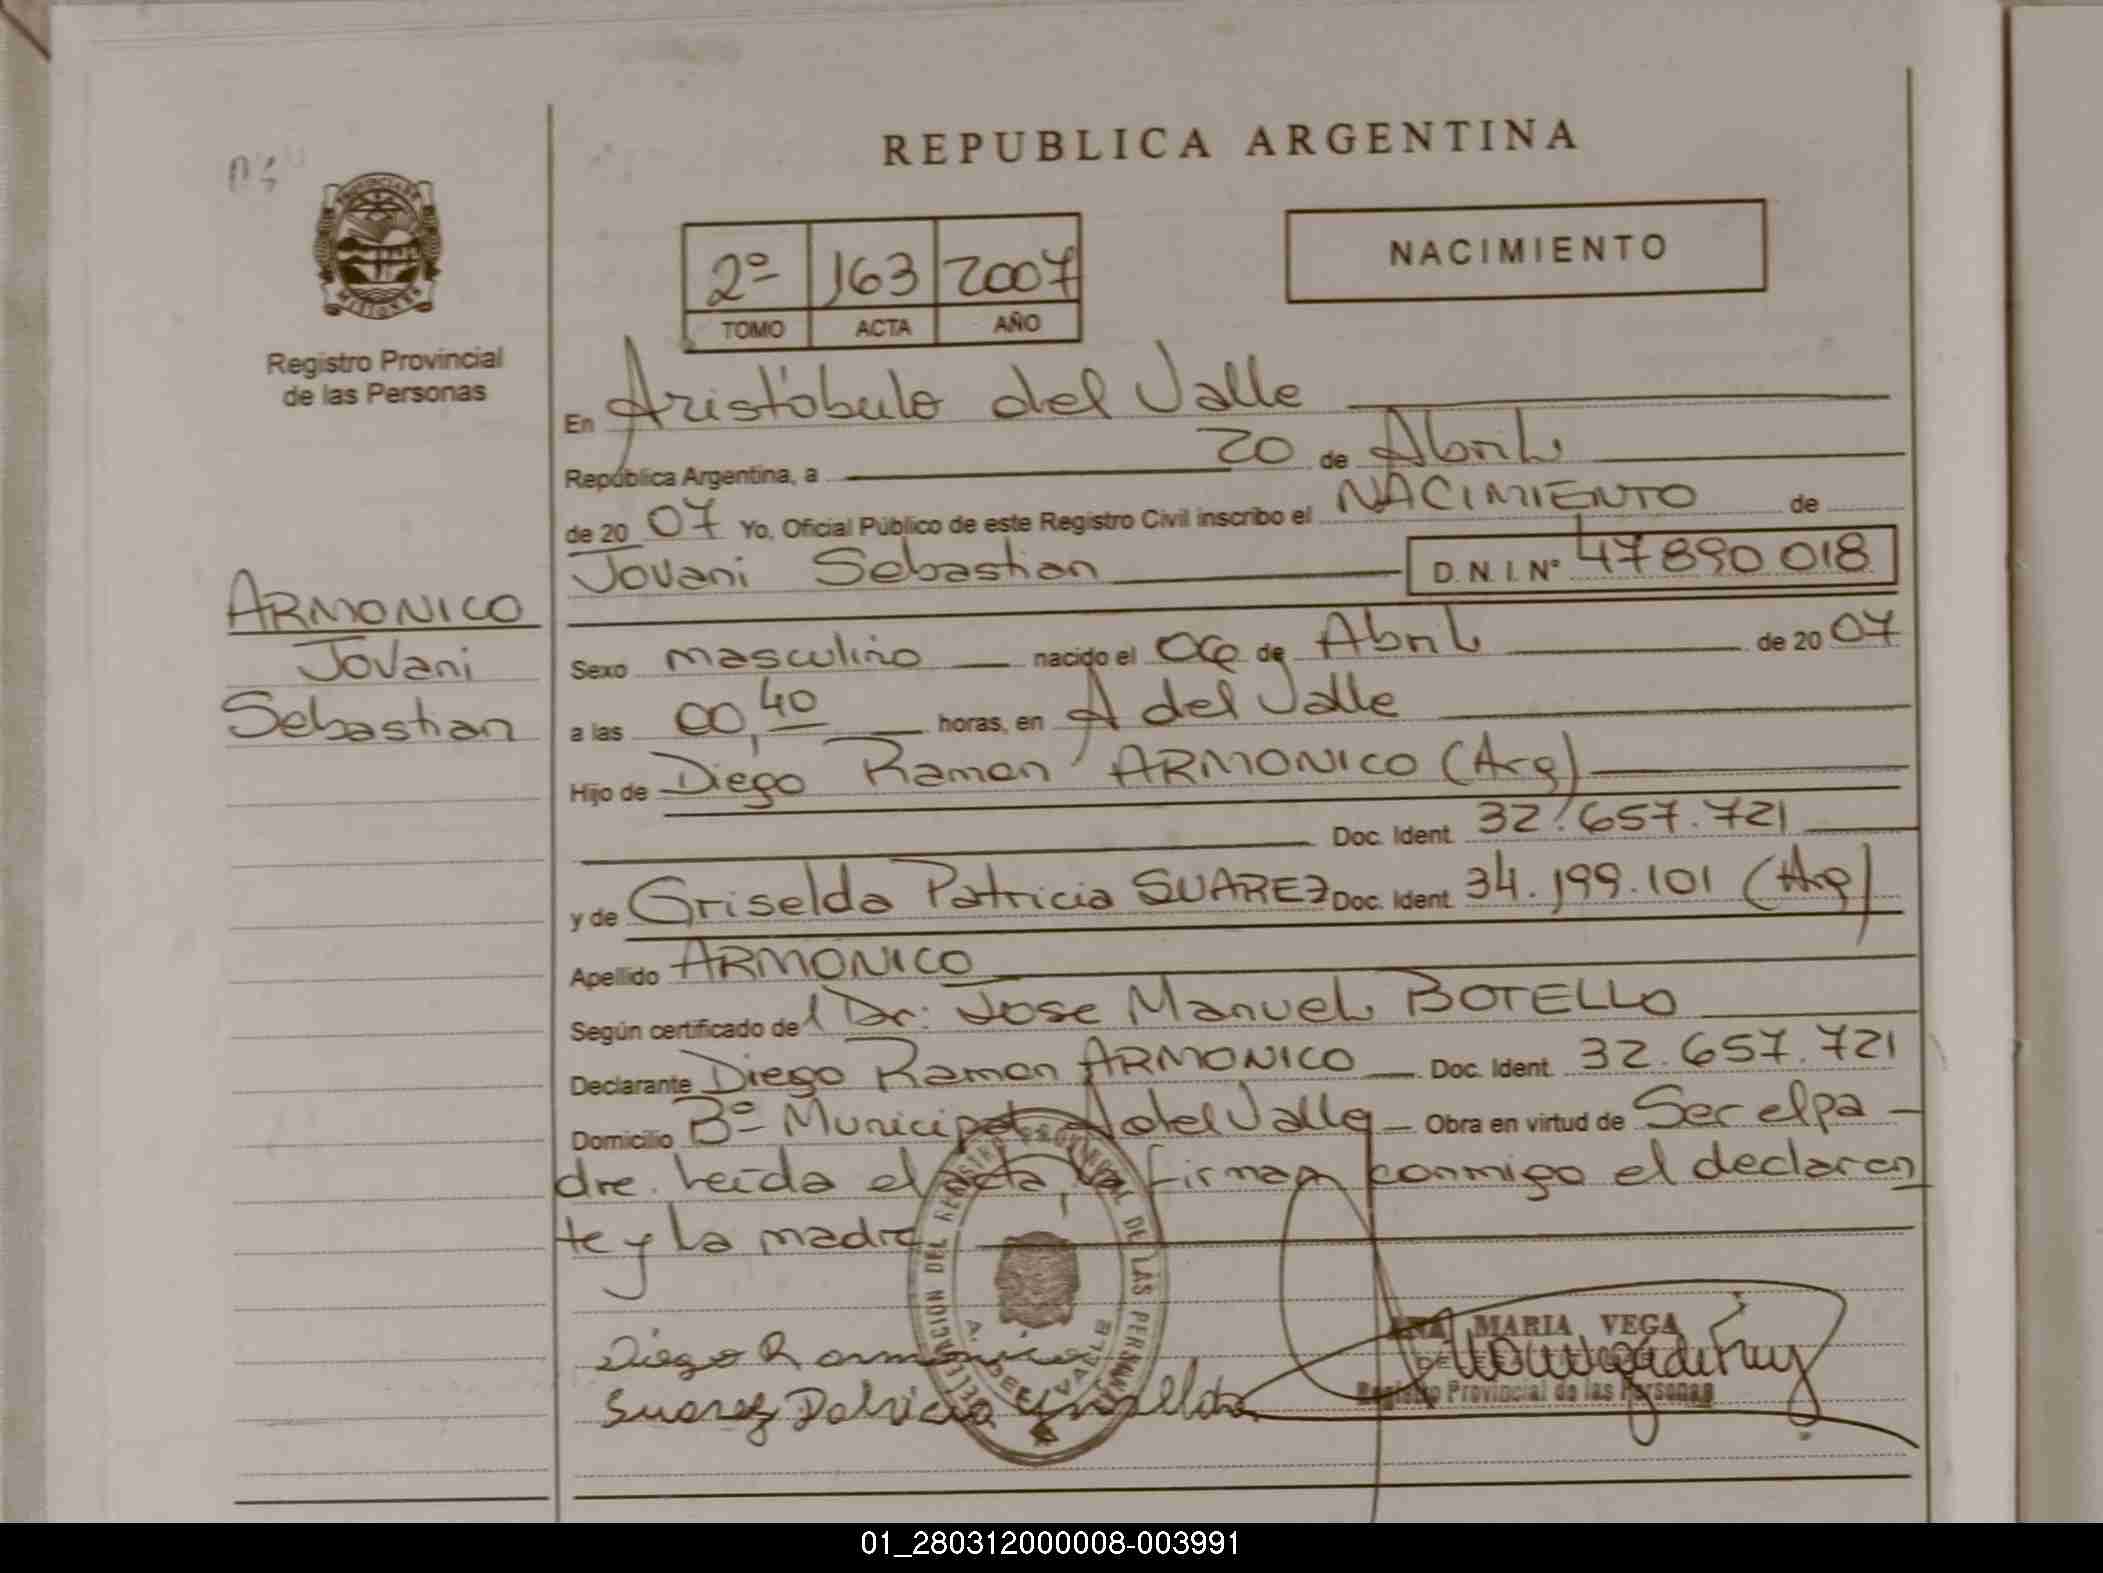 REPUBLICA ARGENTINA
PROVINCIA DE
MISIONES
Registro Provincial
de las Personas
2º 163 2007
TOMO ACTA AÑO
NACIMIENTO
En Aristóbulo del Valle
República Argentina, a 20 de Abril
de 20 07 Yo, Oficial Público de este Registro Civil inscribo el NACIMIENTO de
Jovani Sebastian D.N.I.Nº 47890018
ARMONICO
Jovani
Sebastian
Sexo masculino nacido el 06 de Abril de 20 07
a las 00,40 horas, en A del Valle
Hijo de Diego Ramon ARMONICO (Arg)
Doc. Ident. 32.657.721
y de Griselda Patricia SUAREZ Doc. Ident. 34.199.101 (Arg)
Apellido ARMONICO
Según certificado del Dr. Jose Manuel BOTELLO
Declarante Diego Ramon ARMONICO Doc. Ident. 32.657.721
Domicilio Bº Municipal A del Valle Obra en virtud de Ser el pa
dre. Leída el acta, la firman conmigo el declaran
te y la madre
DELEGACION DEL REGISTRO PROVINCIAL DE LAS PERSONAS
A. DEL VALLE
Diego R armonico
Suarez Patricia Griselda
MARIA VEGA
Registro Provincial de las Personas
01_280312000008-003991